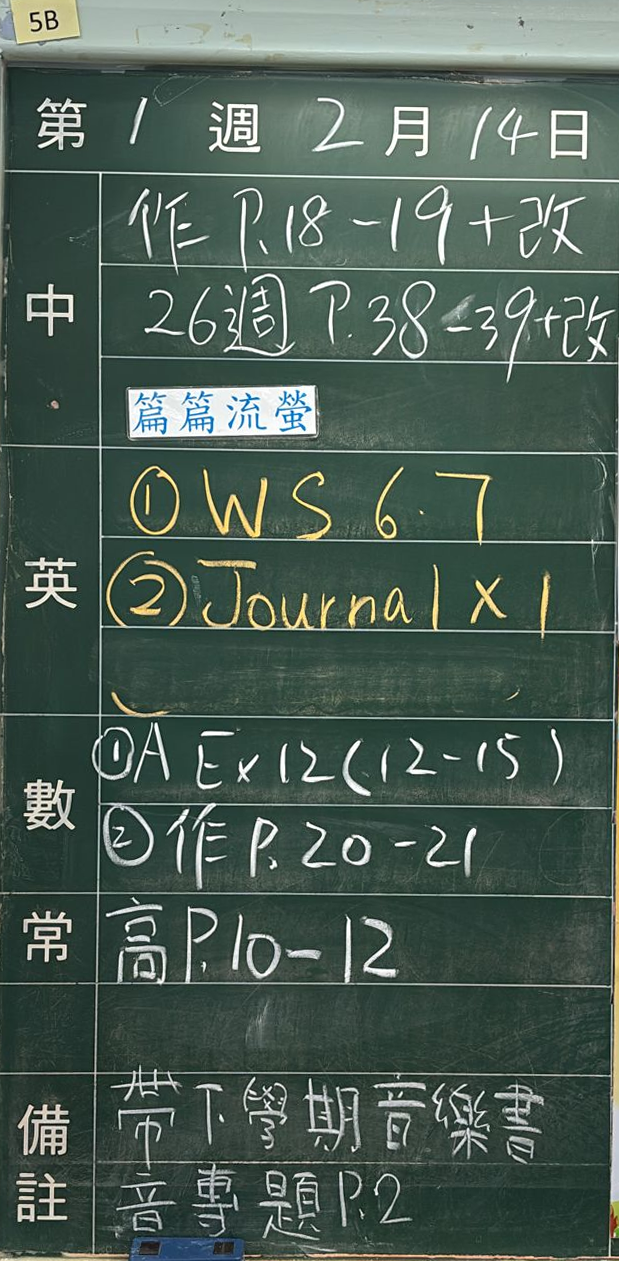 5B
第 1 週 2 月 14 日
中
作 P.18-19+改
26週 P.38-39+改
篇篇流螢
英
① WS 6.7
② Journal x 1
數
① A Ex12(12-15)
② 作 P.20-21
常
高 P.10-12
備註
帶下學期音樂書
音專題 P.2